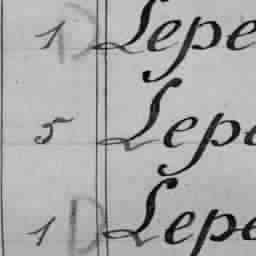 1 D Lepe
5 Lepe
1 D Lepe